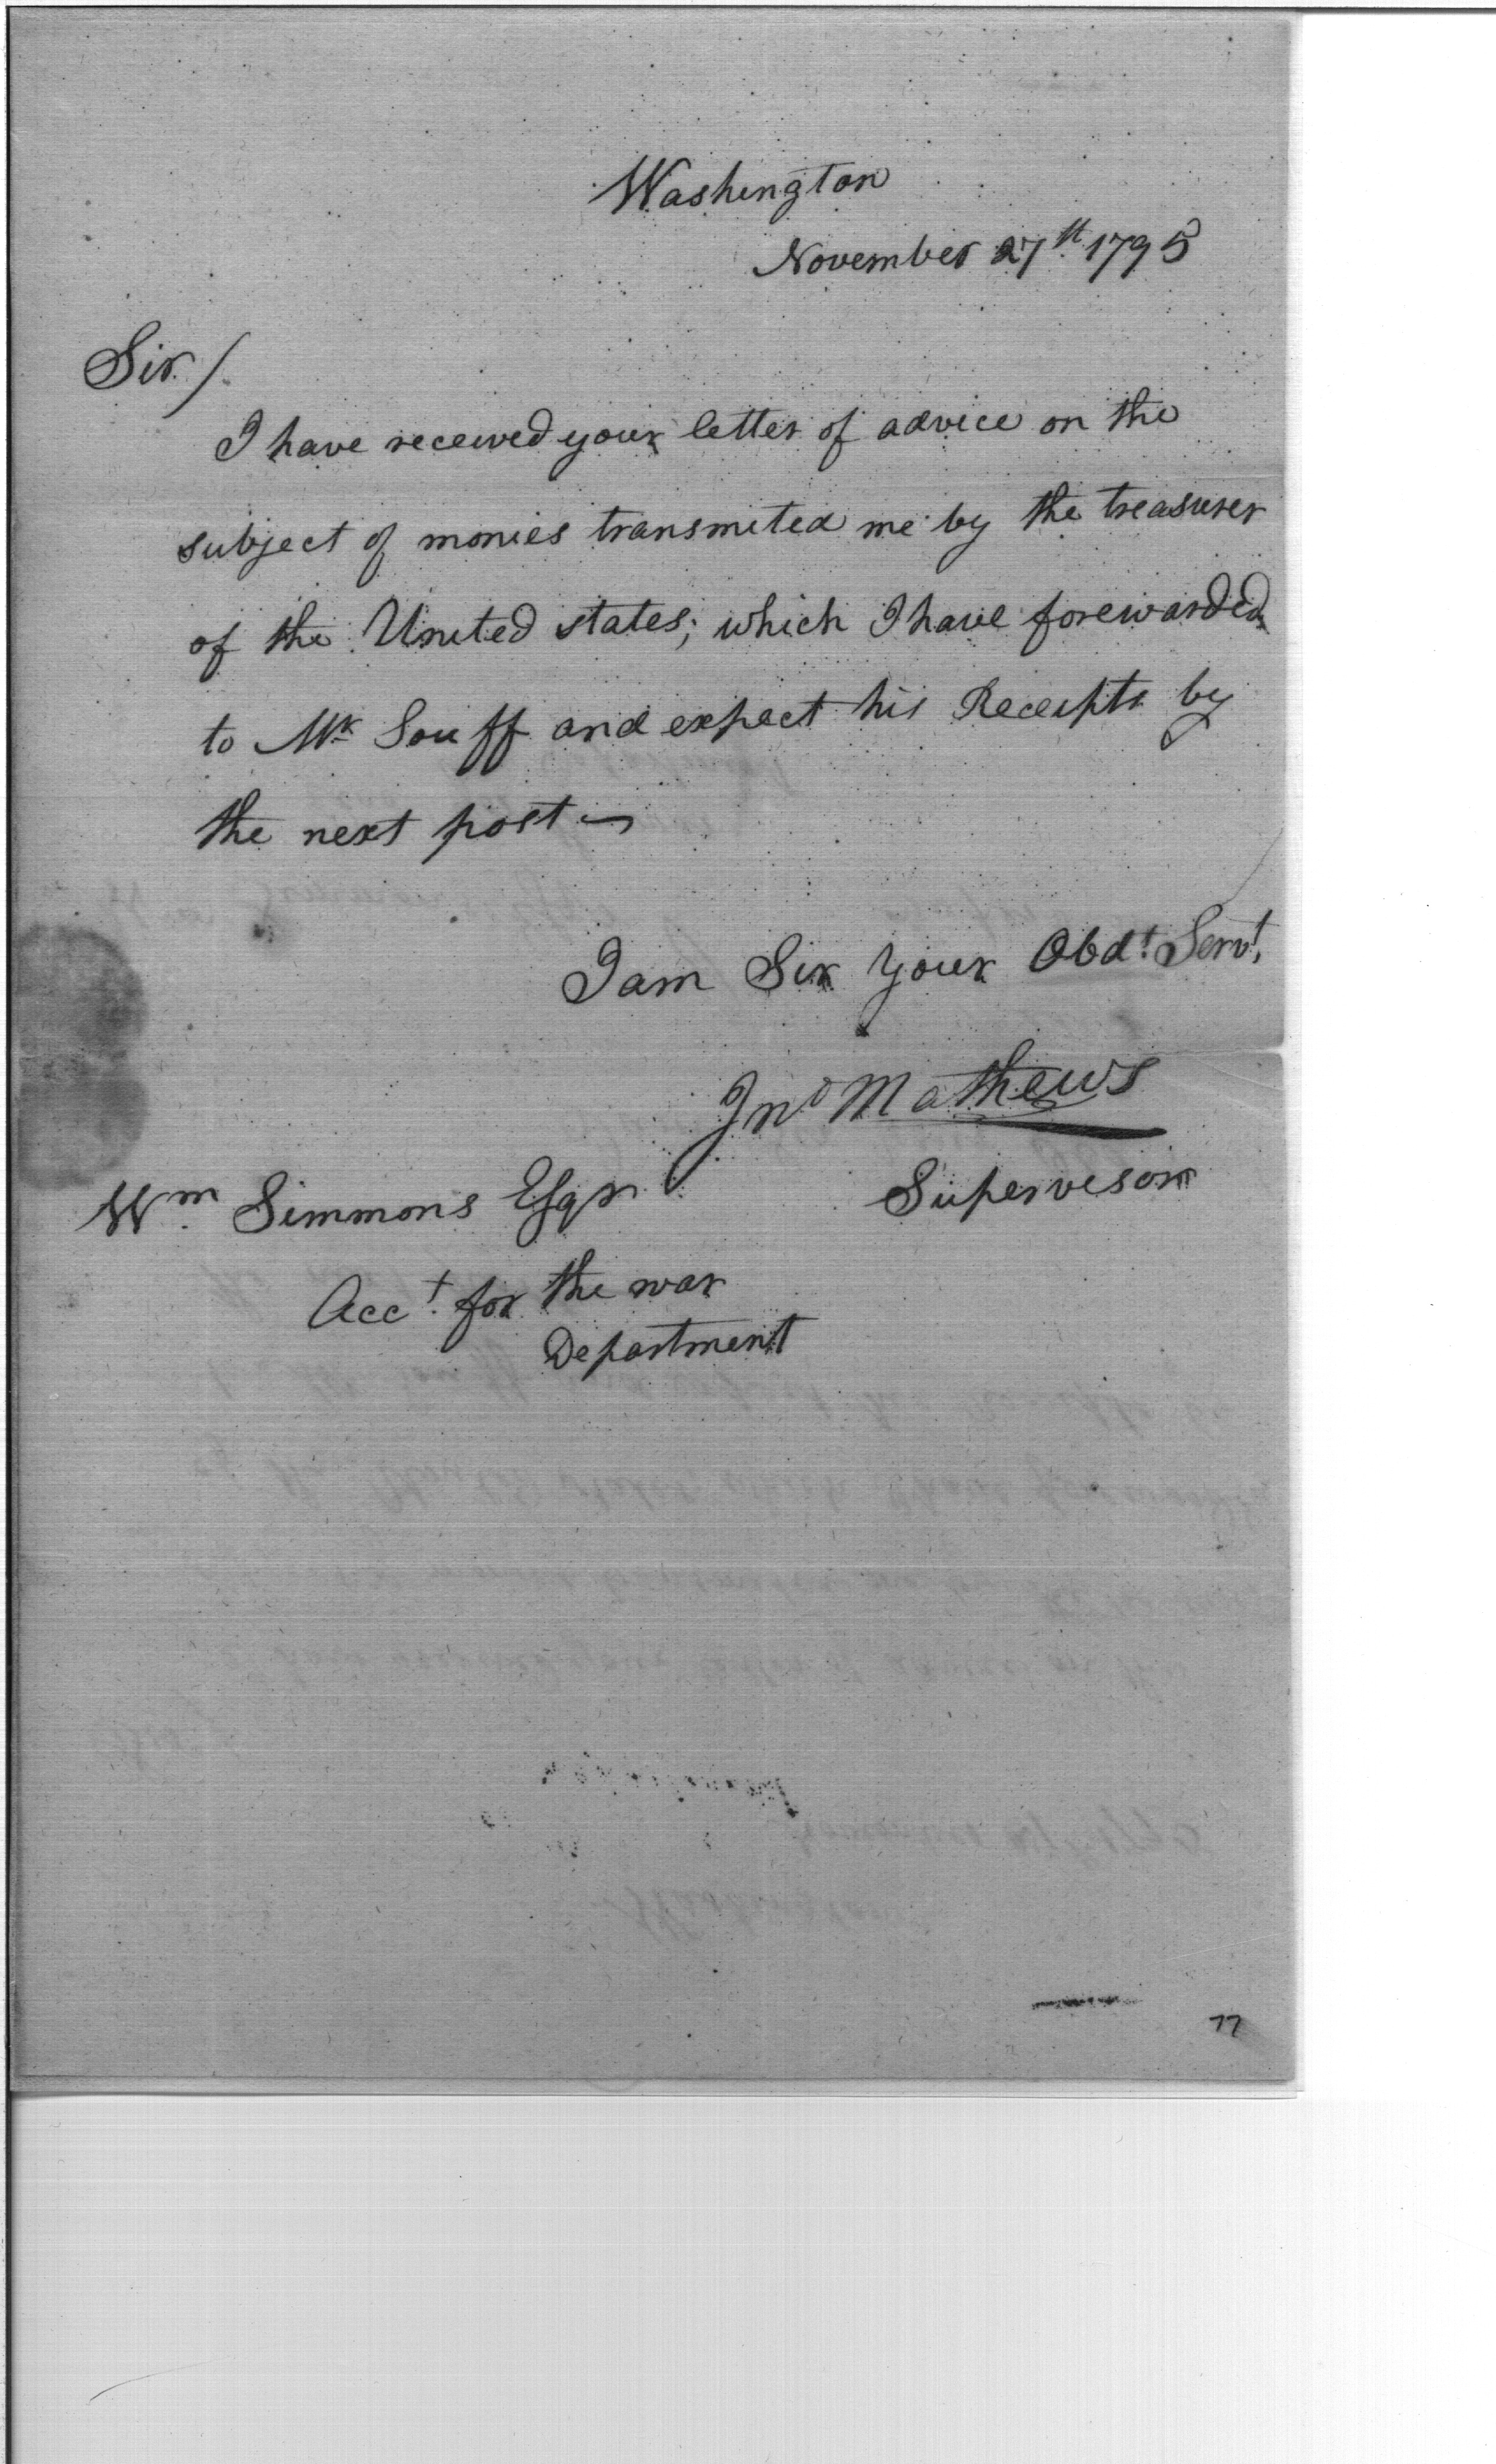 Washington
November 27th 1795
Sir /
I have received your letter of advice on the
subject of monies transmited me by the treasurer
of the United states; which I have forewarded
to Mr Souff and expect his Receipts by
the next post
I am Sir your Obdt. Servt.
Jno Mathews
Supervison
Wm. Simmons Esqr
Acct. for the war
Department
77